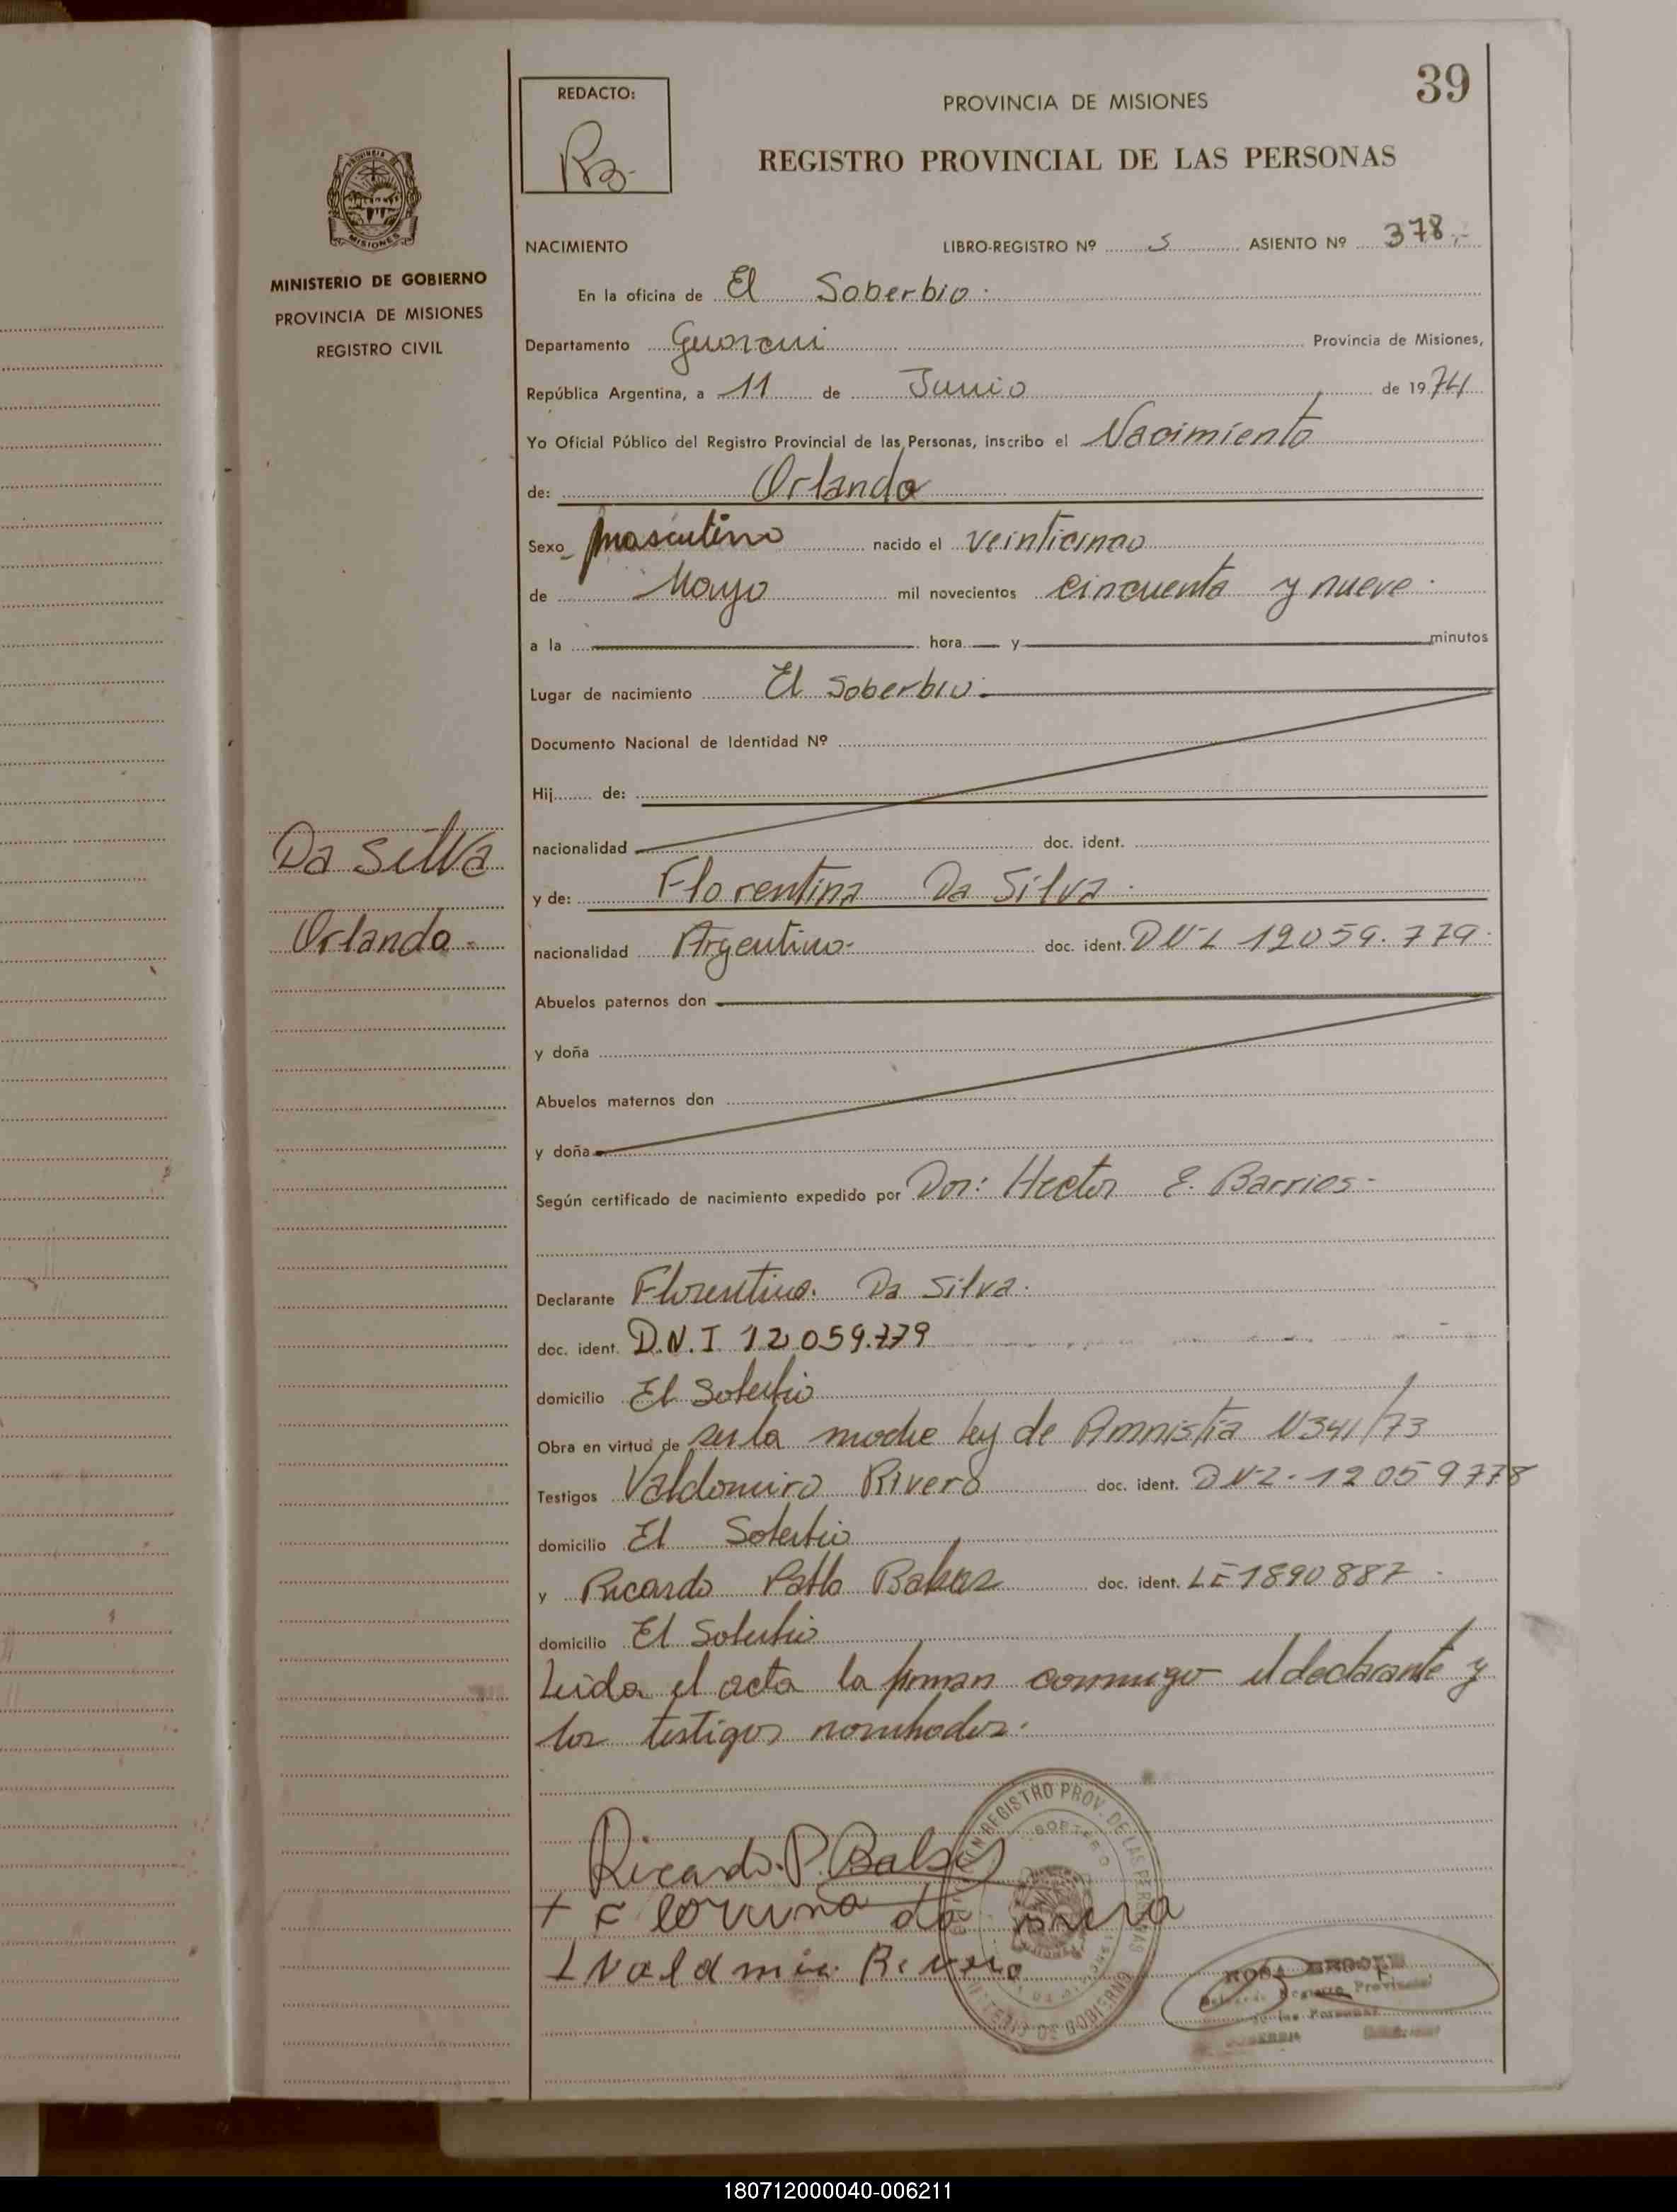 39
REDACTO:
PROVINCIA DE MISIONES
REGISTRO PROVINCIAL DE LAS PERSONAS
PROVINCIA DE
MISIONES
MINISTERIO DE GOBIERNO
PROVINCIA DE MISIONES
REGISTRO CIVIL
NACIMIENTO LIBRO-REGISTRO Nº 5 ASIENTO Nº 378.-
En la oficina de El Soberbio.
Departamento Guarani Provincia de Misiones,
República Argentina, a 11 de Junio de 1974
Yo Oficial Público del Registro Provincial de las Personas, inscribo el Nacimiento
de: Orlando
Sexo masculino nacido el veinticinco
de Mayo mil novecientos cincuenta y nueve.
a la hora y minutos
Lugar de nacimiento El Soberbio.
Documento Nacional de Identidad Nº
Hij de:
nacionalidad doc. ident.
Da Silva
y de: Florentina Da Silva.
Orlando.-
nacionalidad Argentina- doc. ident. DNI 12059.779.
Abuelos paternos don
y doña
Abuelos maternos don
y doña
Según certificado de nacimiento expedido por Dor: Hector E. Barrios-
Declarante Florentina. Da Silva.
doc. ident. D.N.I 12.059.779
domicilio El Soberbio
Obra en virtud de ser la madre Ley de Amnistia N341/73
Testigos Valdomiro Rivero doc. ident. DNI. 12059778
domicilio El Soberbio
y Ricardo Pablo doc. ident. LE 1890887
domicilio El Soberbio
Leida el acta la firman conmigo el declarante y
los testigos nombrados.
REGISTRO PROV. DE LAS PERSONAS
MINISTERIO DE GOBIERNO
Ricardo. P.
180712000040-006211